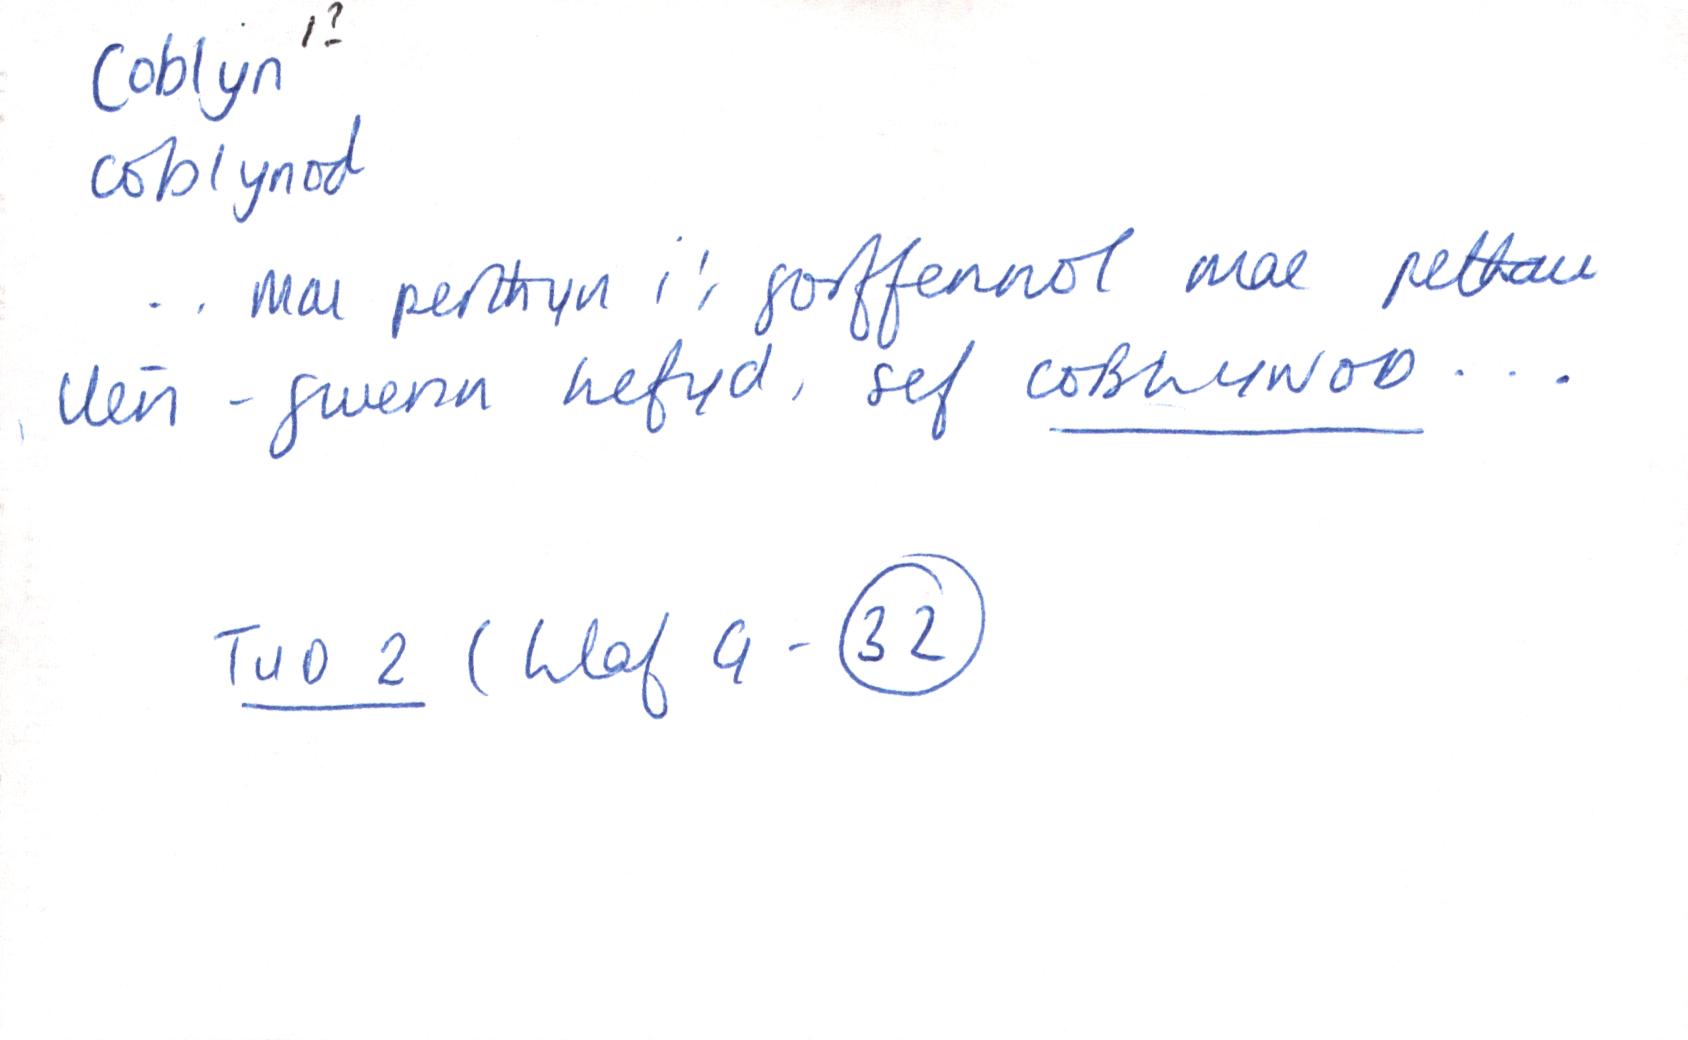 Coblyn 1?
coblynod
.. Mae perthyn i'r gorffennol mae pethau
llên-gwerin hefyd, sef COBLYNOD ...
TUD 2 (Llaf 9 - 32